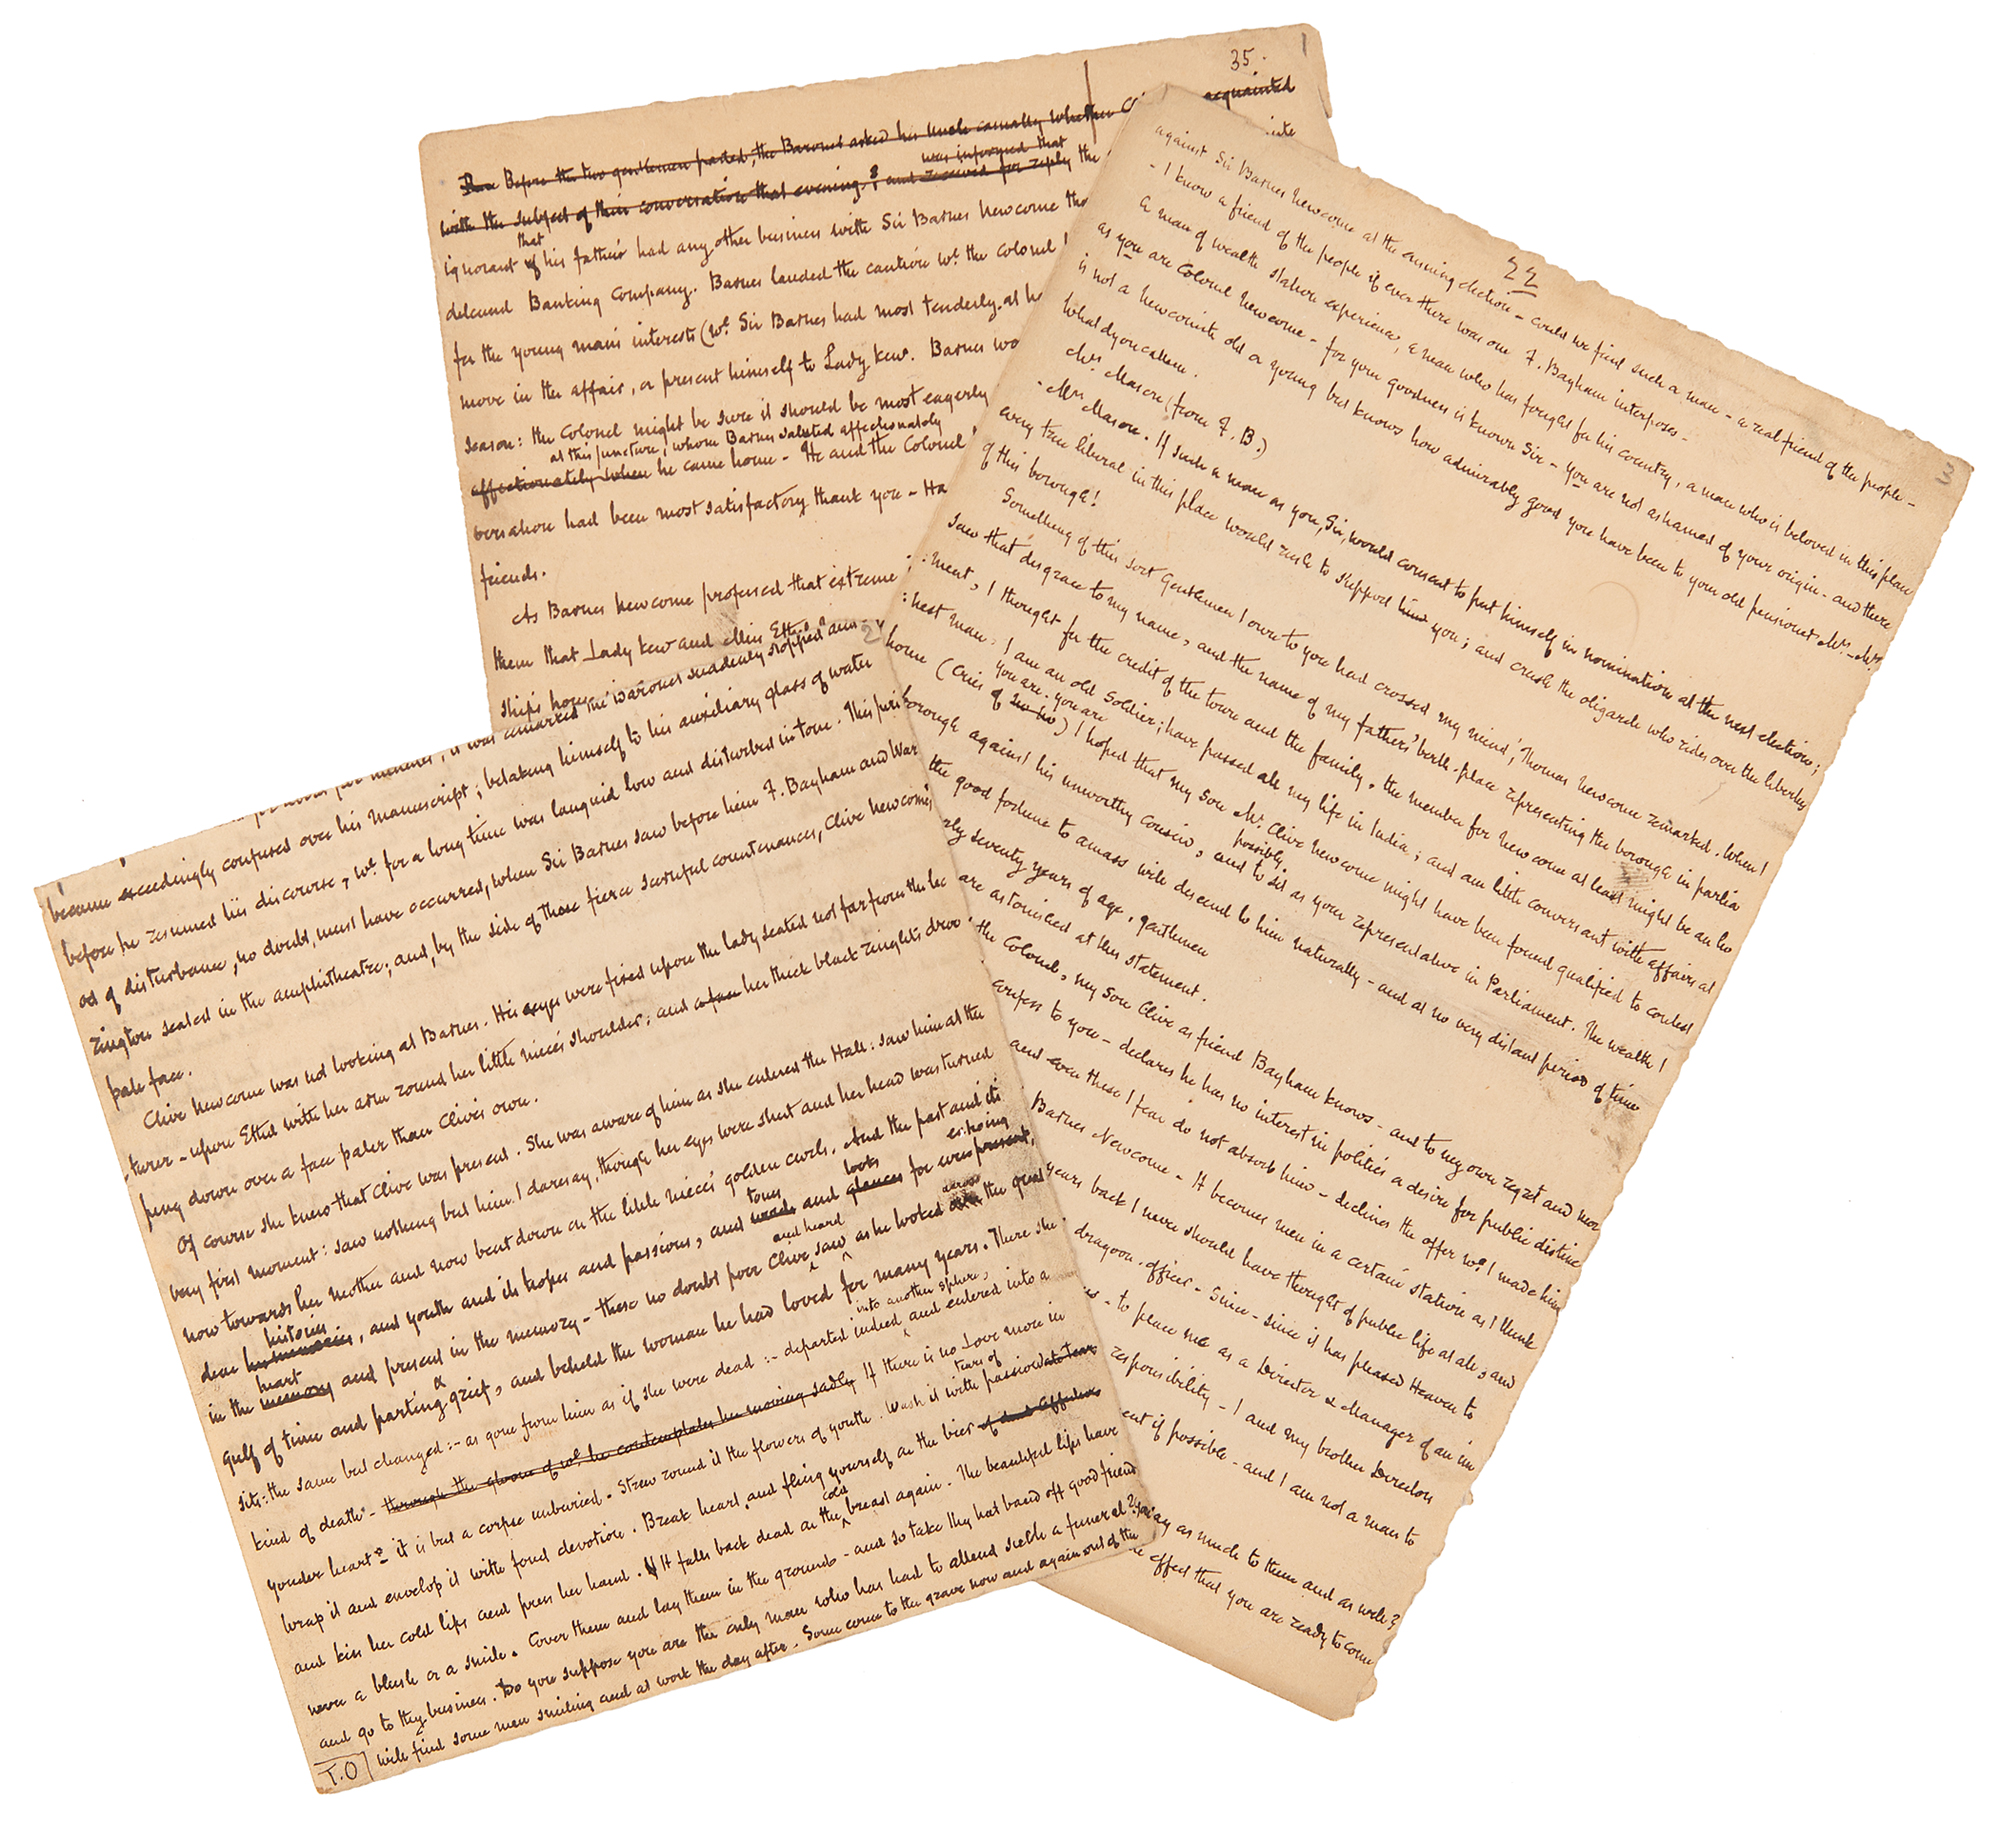 35.
Before the two gentlemen parted, the Baronet asked his Uncle casually whether Cl acquainted
was informed that
with the subject of their conversation that evening? and received for reply the
that
ignorant of his father's had any other business with Sir Barnes Newcome tha
defunct Banking Company. Barnes lauded the caution wh. the Colonel
for the young man's interests (wh. Sir Barnes had most tenderly at he
move in the affair, or present himself to Lady Kew. Barnes wo
season: the Colonel might be sure it should be most eagerly
at this juncture, whom Barnes saluted affectionately
affectionately when he came home - He and the Colonel
versation had been most satisfactory thank you - Ha
friends.
As Barnes Newcome professed that extreme
them that Lady Kew and Miss Ethel
ship's house
22
3
against Sir Barnes Newcome at the ensuing election - could we find such a man - a real friend of the people -
- I know a friend of the people if ever there was one F. Bayham interposes -
A man of wealth station experience, a man who has fought for his country, a man who is beloved in this place
as you are Colonel Newcome - for your goodness is known Sir - you are not ashamed of your origin - and there
is not a Newcomite old or young but knows how admirably good you have been to your old pensioner Mrs. - Mrs.
Whatdyoucallem.
Mrs. Mason (from F. B.)
- Mrs Mason. If such a man as you, Sir, would consent to put himself in nomination at the next election;
every true liberal in this place would rush to support him you; and crush the oligarch who rides over the liberties
of this borough!
Something of this sort Gentlemen I own to you had crossed my mind, Thomas Newcome remarked. When I
saw that disgrace to my name, and the name of my father's birth-place representing the borough in parlia
:ment, I thought for the credit of the town and the family, the member for Newcome at least might be an ho
:nest man. I am an old soldier; have passed all my life in India; and am little conversant with affairs at
you are. you are
home (Cries of no no) I hoped that my son Mr. Clive Newcome might have been found qualified to contest
borough against his unworthy cousin, and possibly to sit as your representative in Parliament. The wealth I
the good fortune to amass will descend to him naturally - and at no very distant period of time
rly seventy years of age, gentlemen
are astonished at this statement.
the Colonel, my son Clive as friend Bayham knows - and to my own regret and mor
onfess to you - declares he has no interest in politics a desire for public distinc
and even these I fear do not absorb him - declines the offer wh. I made him
Barnes Newcome - It becomes men in a certain station as I think
years back I never should have thought of public life at all, and
dragoon-officer - since - since it has pleased Heaven to
- to place me as a Director & Manager of an im
responsibility - I and my brother Directors
ent if possible - and I am not a man to
say as much to them and as well?
effect that you are ready to come
2
it was remarked the Baronet suddenly stopped and
became exceedingly confused over his manuscript; betaking himself to his auxiliary glass of water
before he resumed his discourse, wh. for a long time was languid low and disturbed in tone. This peri
od of disturbance, no doubt, must have occurred, when Sir Barnes saw before him F. Bayham and War
rington seated in the amphitheatre; and, by the side of those fierce scornful countenances, Clive Newcome's
pale face.
Clive Newcome was not looking at Barnes. His eyes were fixed upon the lady seated not far from the lec
:turer - upon Ethel with her arm round her little niece's shoulder; and a face her thick black ringlets droo
ping down over a face paler than Clive's own.
Of course she knew that Clive was present. She was aware of him as she entered the Hall: saw him at the
very first moment: saw nothing but him I daresay, though her eyes were shut and her head was turned
now towards her mother and now bent down on the little niece's golden curls. And the past and its
histories tones looks echoing
dear , and youth and its hopes and passions, and words and glances for ever present,
heart and heard across
in the memory and present in the memory - these no doubt poor Clive saw as he looked the great
gulf of time and parting & grief, and beheld the woman he had loved for many years. There she
into another sphere,
sits: the same but changed :- as gone from him as if she were dead :- departed indeed and entered into a
kind of death - through the gloom of wh. he contemplates her moving sadly If there is no Love more in
tears of
yonder heart? it is but a corpse unburied. Strew round it the flowers of youth. Wash it with passionate tears
wrap it and envelop it with fond devotion. Break heart, and fling yourself on the bier
cold
and kiss her cold lips and press her hand. It falls back dead on the breast again. The beautiful lips have
never a blush or a smile. Cover them and lay them in the ground - and so take thy hat band off good friend
and go to thy business. Do you suppose you are the only man who has had to attend such a funeral? You
will find some men smiling and at work the day after. Some come to the grave now and again out of the
T.O